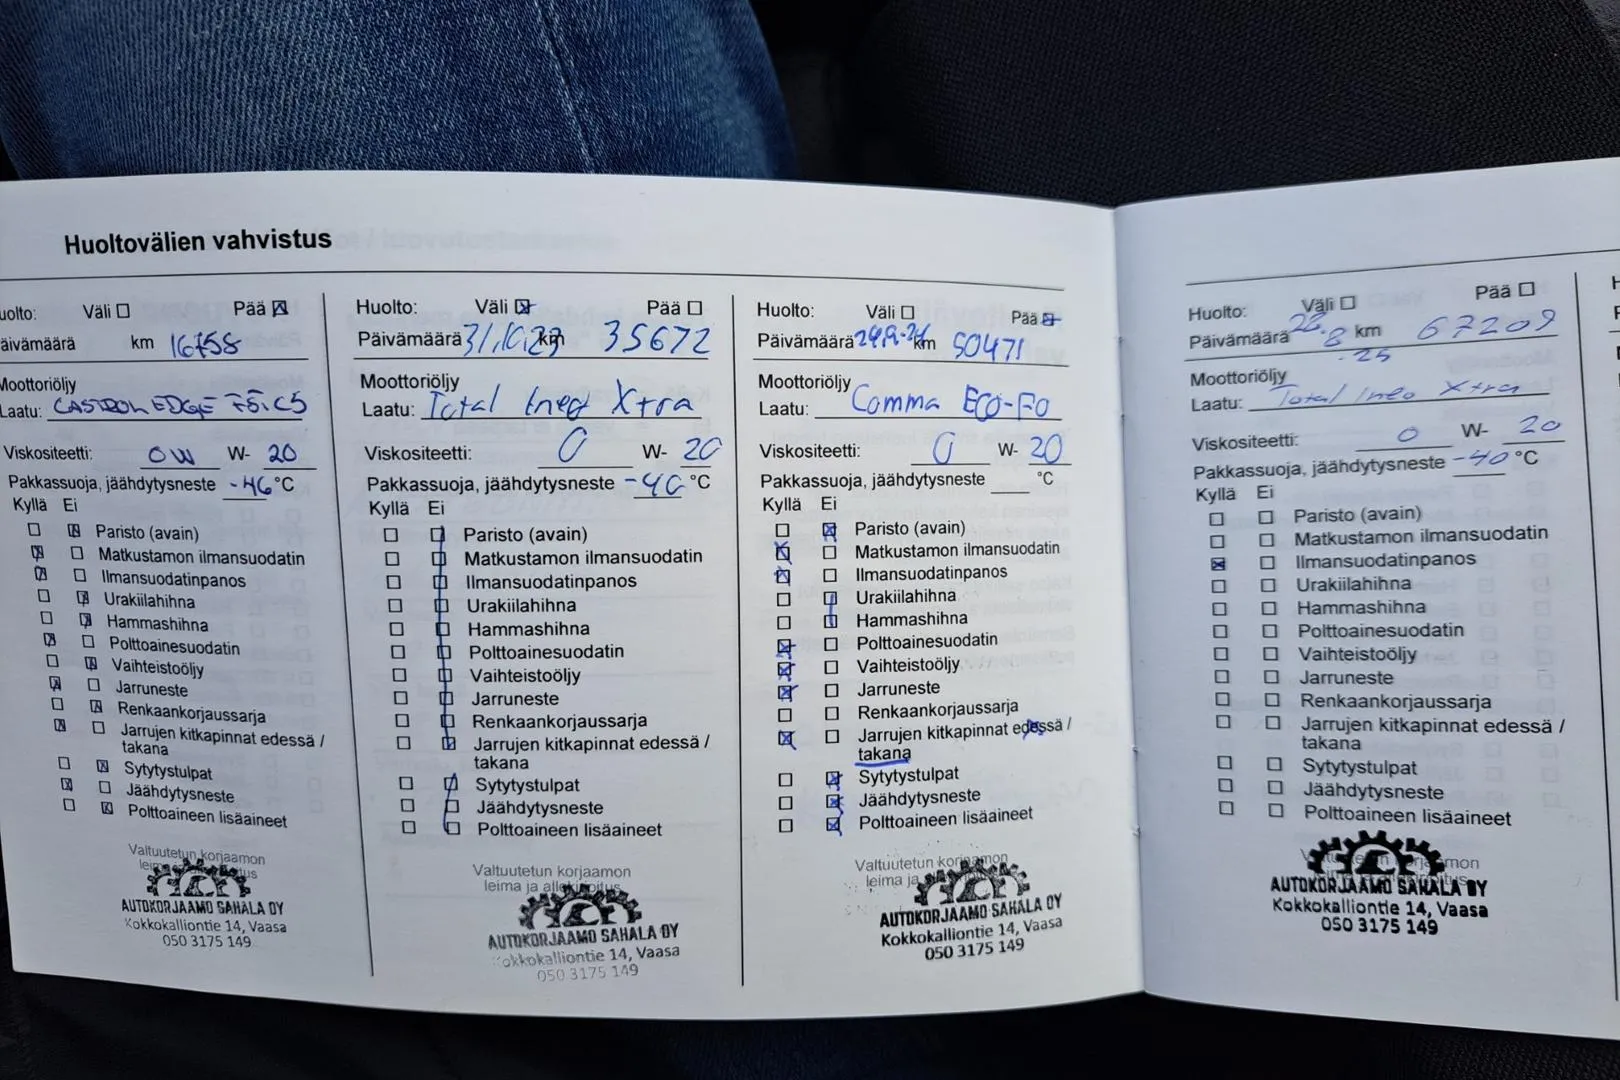 Huoltovälien vahvistus
uolto: Väli Pää
äivämäärä km 16758
Moottoriöljy
Laatu: CASTROL EDGE C5
Viskositeetti: 0W W- 20
Pakkassuoja, jäähdytysneste -46 °C
Kyllä Ei
Paristo (avain)
Matkustamon ilmansuodatin
Ilmansuodatinpanos
Urakiilahihna
Hammashihna
Polttoainesuodatin
Vaihteistoöljy
Jarruneste
Renkaankorjaussarja
Jarrujen kitkapinnat edessä /
takana
Sytytystulpat
Jäähdytysneste
Polttoaineen lisäaineet
Valtuutetun korjaamon
AUTOKORJAAMO SAHALA OY
Kokkokalliontie 14, Vaasa
050 3175 149
Huolto: Väli Pää
Päivämäärä 31.10.23 km 35672
Moottoriöljy
Laatu: Total Ineo Xtra
Viskositeetti: 0 W- 20
Pakkassuoja, jäähdytysneste -40 °C
Kyllä Ei
Paristo (avain)
Matkustamon ilmansuodatin
Ilmansuodatinpanos
Urakiilahihna
Hammashihna
Polttoainesuodatin
Vaihteistoöljy
Jarruneste
Renkaankorjaussarja
Jarrujen kitkapinnat edessä /
takana
Sytytystulpat
Jäähdytysneste
Polttoaineen lisäaineet
Valtuutetun korjaamon
leima ja allekirjoitus
AUTOKORJAAMO SAHALA OY
Kokkokalliontie 14, Vaasa
050 3175 149
Huolto: Väli Pää
Päivämäärä km 50471
Moottoriöljy
Laatu: Comma ECO-FO
Viskositeetti: 0 W- 20
Pakkassuoja, jäähdytysneste °C
Kyllä Ei
Paristo (avain)
Matkustamon ilmansuodatin
Ilmansuodatinpanos
Urakiilahihna
Hammashihna
Polttoainesuodatin
Vaihteistoöljy
Jarruneste
Renkaankorjaussarja
Jarrujen kitkapinnat edessä /
takana
Sytytystulpat
Jäähdytysneste
Polttoaineen lisäaineet
Valtuutetun korjaamon
leima ja
AUTOKORJAAMO SAHALA OY
Kokkokalliontie 14, Vaasa
050 3175 149
Huolto: Väli Pää
Päivämäärä 26.8 km 67209
-25
Moottoriöljy
Laatu: Total Ineo Xtra
Viskositeetti: 0 W- 20
Pakkassuoja, jäähdytysneste -40 °C
Kyllä Ei
Paristo (avain)
Matkustamon ilmansuodatin
Ilmansuodatinpanos
Urakiilahihna
Hammashihna
Polttoainesuodatin
Vaihteistoöljy
Jarruneste
Renkaankorjaussarja
Jarrujen kitkapinnat edessä /
takana
Sytytystulpat
Jäähdytysneste
Polttoaineen lisäaineet
Valtuutetun korjaamon
leima ja allekirjoitus
AUTOKORJAAMO SAHALA OY
Kokkokalliontie 14, Vaasa
050 3175 149